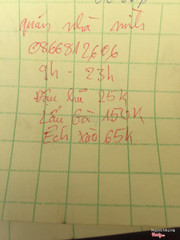 quán nhà mits
0866812606
9h - 23h
Đậu hũ 25k
Lẩu Gà 150k
Ếch xào 65k